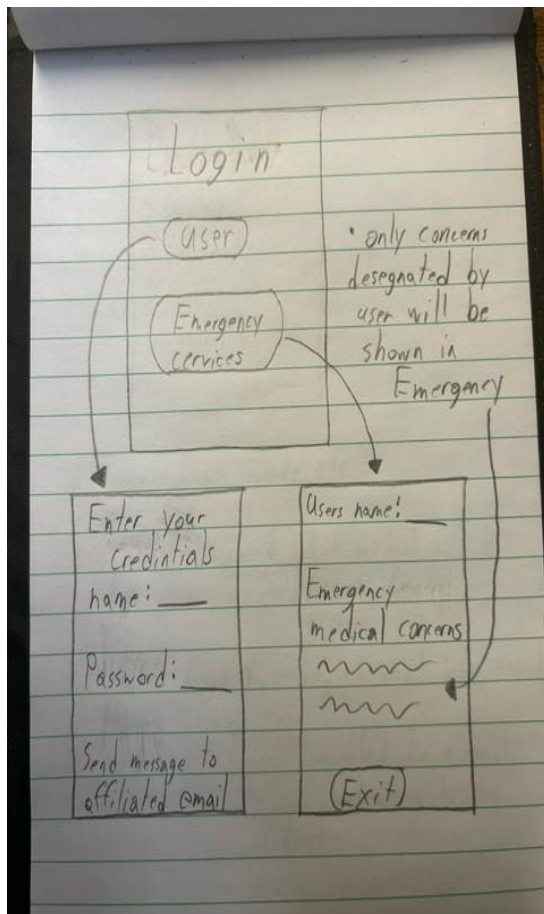 Login
user
Emergency
cervices
• only concerns
desegnated by
user will be
shown in
Emergency
Enter your
Credintials
name:
Password:
Send message to
affiliated email
Users name:
Emergency
medical concerns
Exit